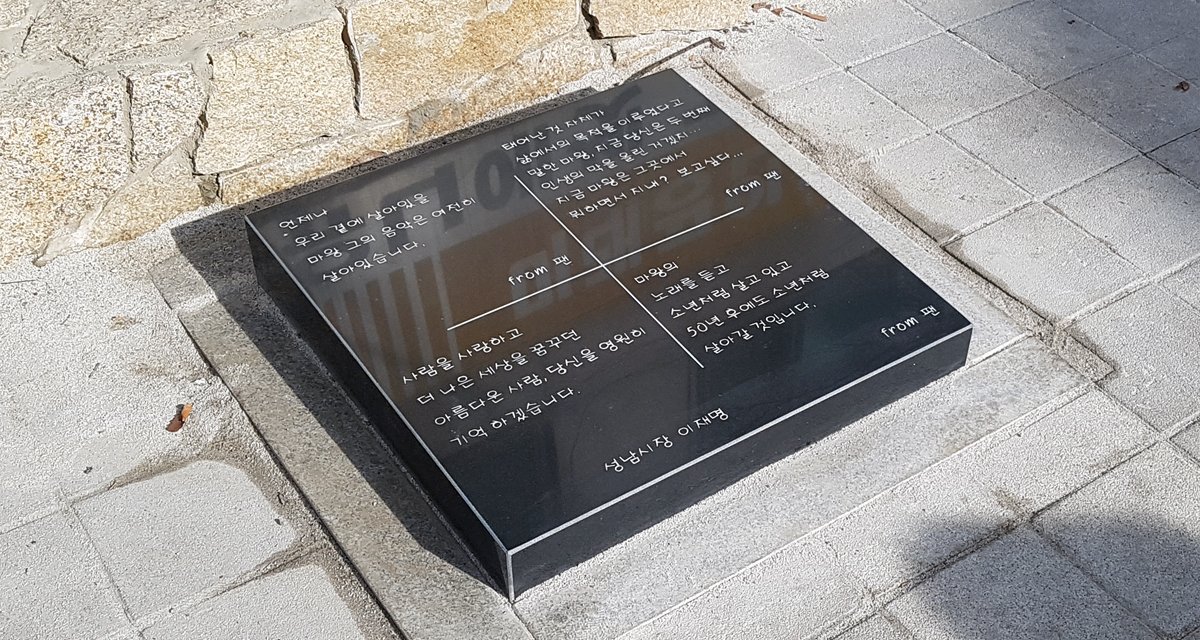 언제나
우리 곁에 살아있을
마왕 그의 음악은 여전히
살아있습니다.
from 팬
태어난 것 자체가
삶에서의 목적을 이루었다고
말한 마왕, 지금 당신은 두 번째
인생의 막을 올린 거겠지...
지금 마왕은 그곳에서
뭐하면서 지내? 보고싶다...
from 팬
사람을 사랑하고
더 나은 세상을 꿈꾸던
아름다운 사람, 당신을 영원히
기억 하겠습니다.
성남시장 이재명
마왕의
노래를 듣고
소년처럼 살고 있고
50년 후에도 소년처럼
살아갈 것입니다.
from 팬